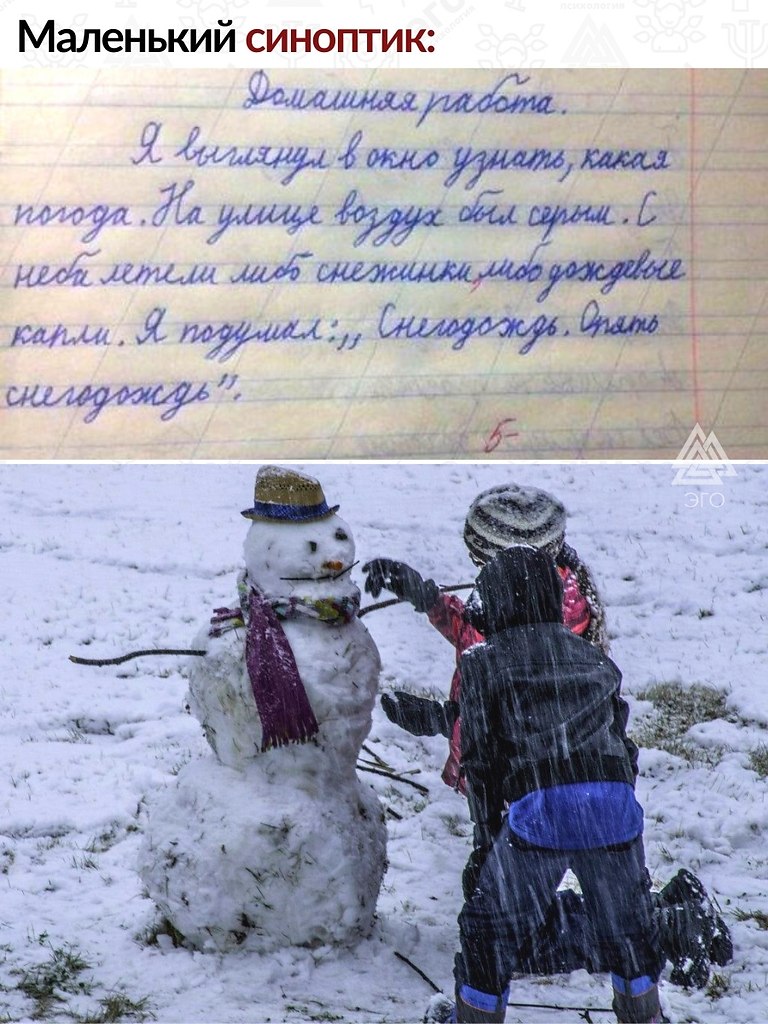 Маленький синоптик:
Домашняя работа.
Я выглянул в окно узнать, какая
погода. На улице воздух был серым. С
неба летели либо снежинки, либо дождевые
капли. Я подумал: „ Снегодождь. Опять
снегодождь".
5-
ЭГО